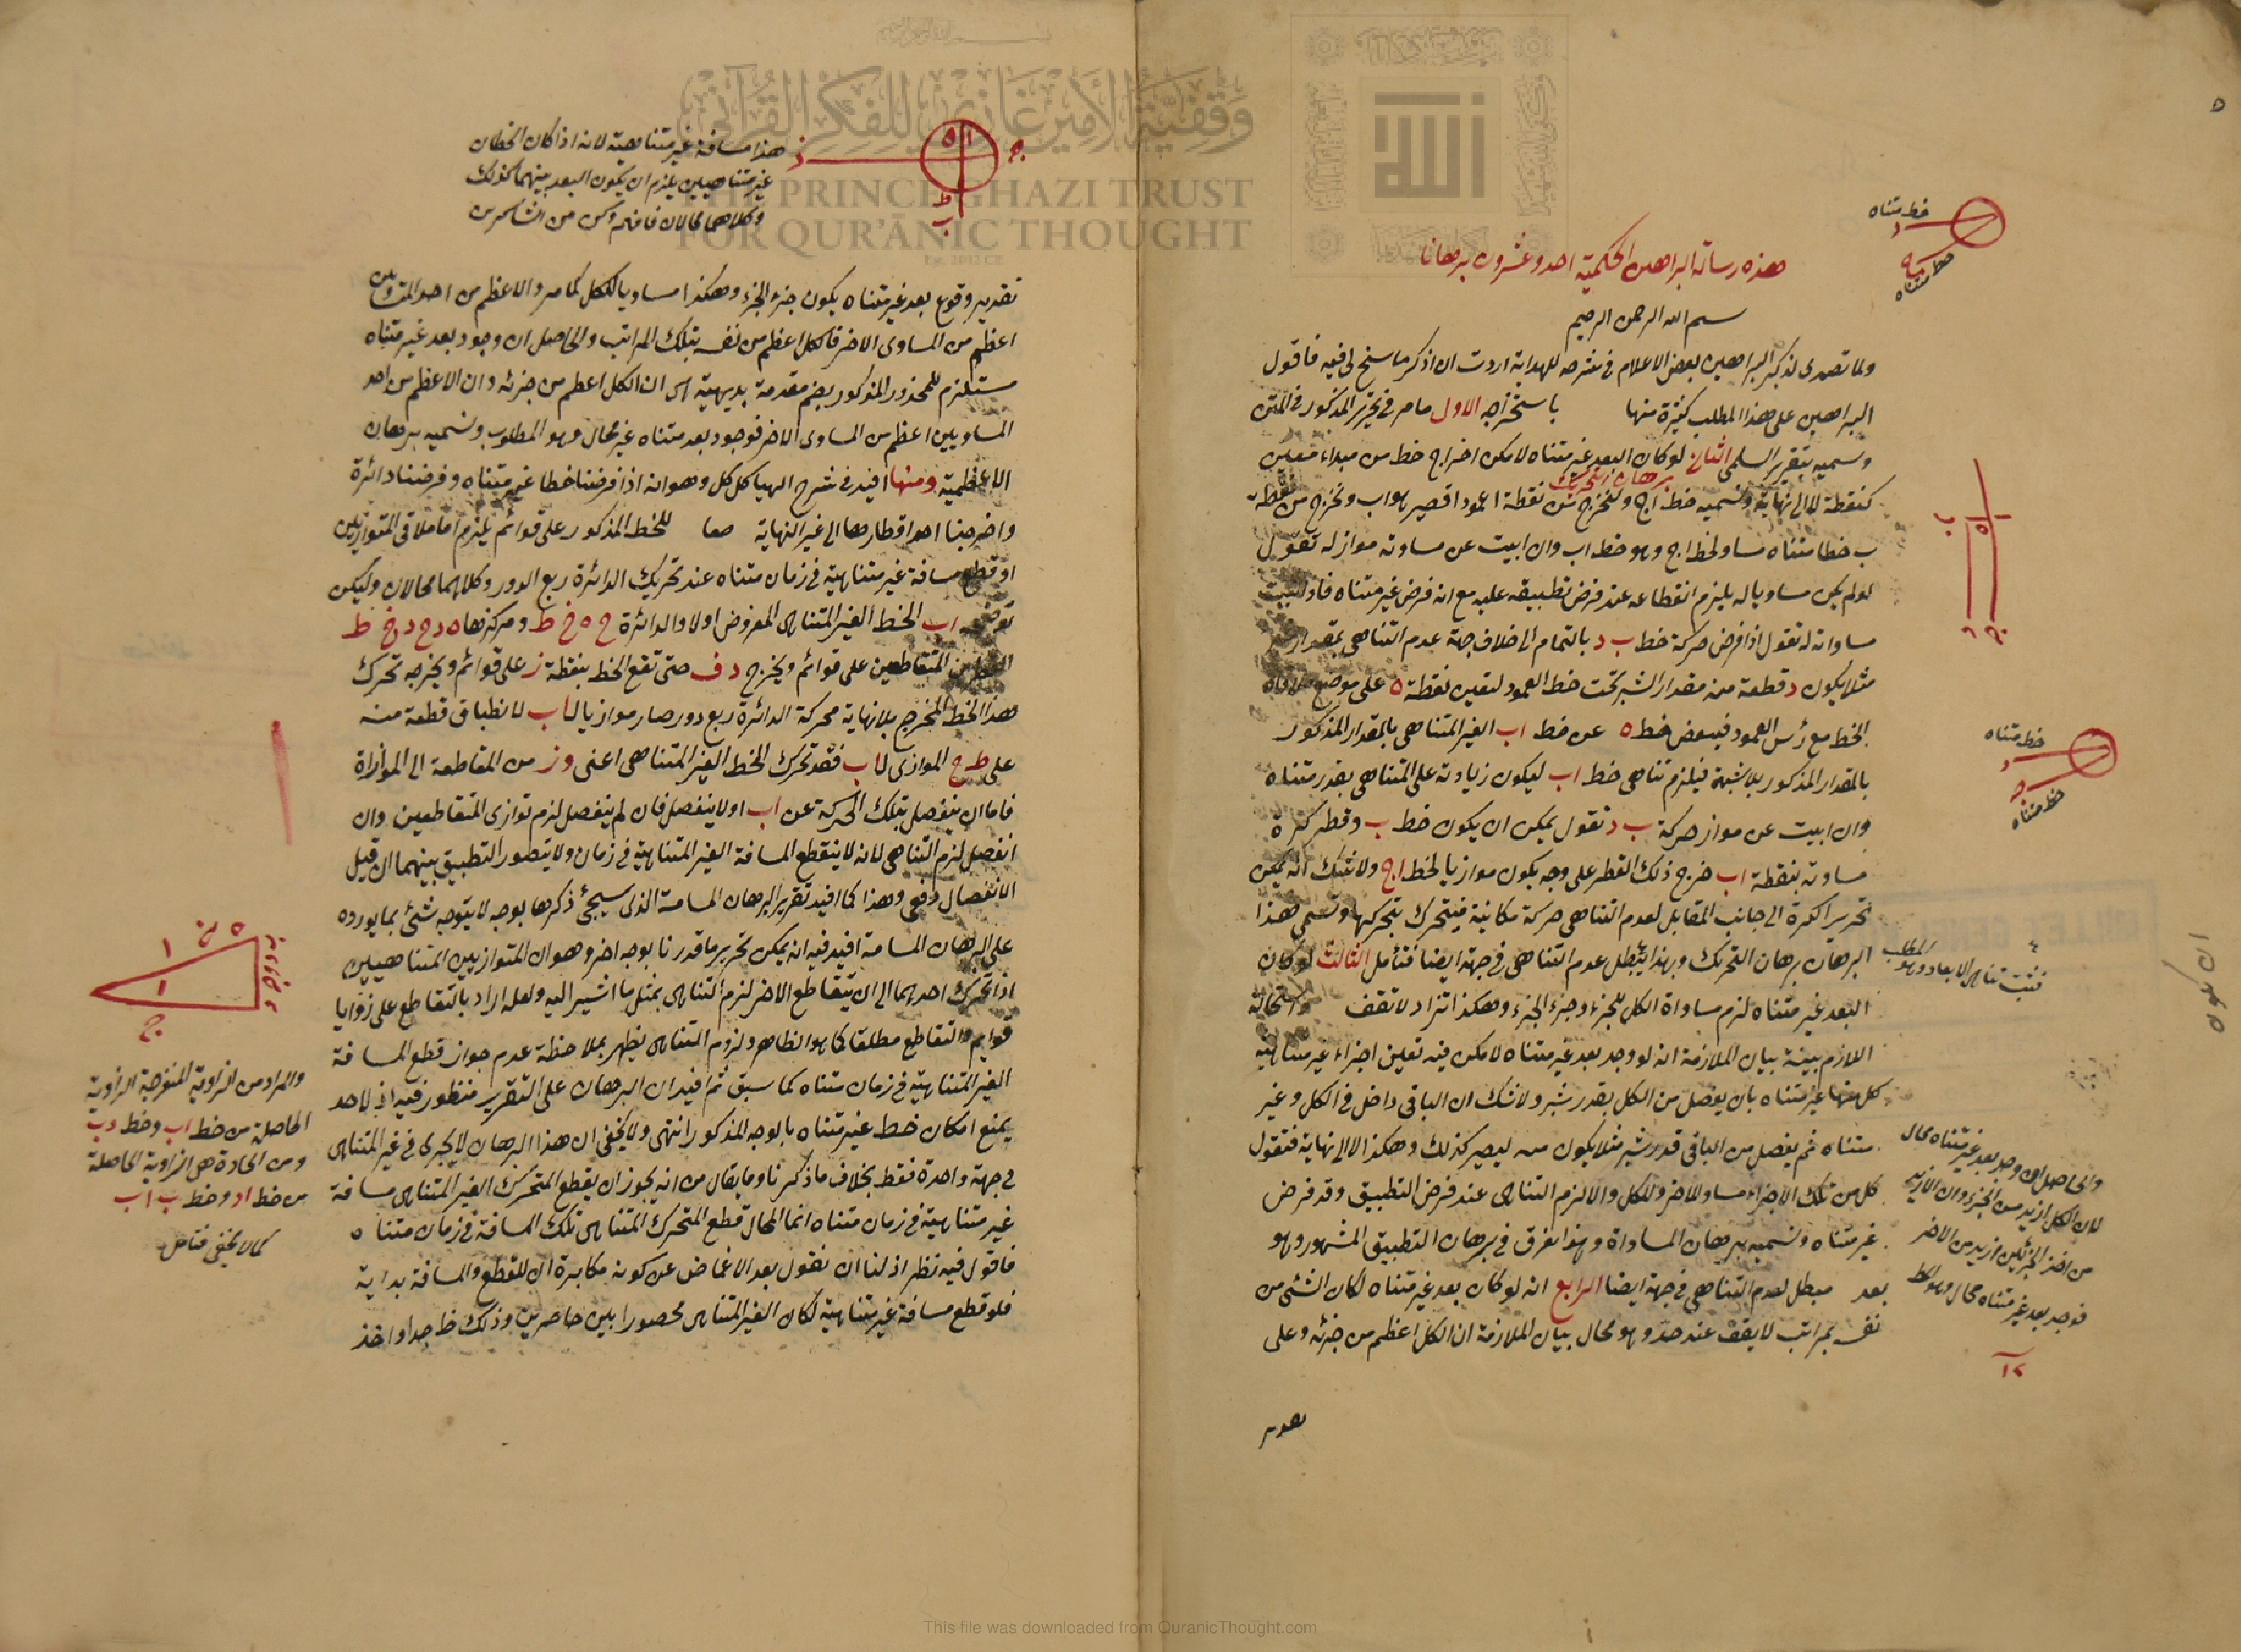 هذه رسالة البراهين الحكمية احد وعشرون برهانا
بسم الله الرحمن الرحيم
ولما تصدى لذكر البراهين بعض الاعلام في شرحه للهداية اردت ان اذكر ما سنح لي فيه فاقول
البراهين على هذا المطلب كثيرة منها باستخراجه الاول ما مر في تحرير المذكور في المتن
وسميه بتقرير السلمي الثاني لو كان البعد غير متناه لامكن اخراج خط من مبداء معين
برهان التحريك
كنقطة ا لا الى نهاية ونسميه خط اج ولنخرج من نقطة ا عمودا قصير هو اب ونخرج من نقطة
ب خطا متناه مساو لخط اج وهو خط اب وان ابيت عن مساوته مواز له تقول
لو لم يكن مساويا له يلزم انقطاعه عند فرض تطبيقه عليه مع انه فرض غير متناه فاذا ثبت
مساواته له تقول اذا فرض حركة خط ب د بالتمام الى خلاف جهة عدم التناهي بمقدار
مثلا يكون د قطعة منه مقدار الشبر تحت خط العمود لتعين نقطة ه على موضع ملاقاة
الخط مع رأس العمود فبعض خط ه عن خط اب الغير المتناهي بالمقدار المذكور
بالمقدار المذكور بلا شبهة فيلزم تناهي خط اب ليكون زيادته على المتناهي بقدر متناه
وان ابيت عن مواز حركة ب د تقول يمكن ان يكون خط ب د قطر كرة
مساوته بنقطة اب خرج ذلك القطر على وجه يكون موازيا لخط اج ولا شك انه يمكن
تحرير الكرة الى جانب المقابل لعدم التناهي حركة مكانية فيتحرك بتحركها وتسمى هذا
البرهان برهان التحريك وبهذا يبطل عدم التناهي في جهة ايضا فتأمل الثالث لو كان
البعد غير متناه لزم مساواة الكل للجزء وجزء الجزء وهكذا تزاد لا تقف واستحالة
اللازم بينة بيان الملازمة انه لو وجد بعد غير متناه لامكن فيه تعين اجزاء غير متناهية
كل منها غير متناه بان يفصل من الكل بقدر شبر ولا شك ان الباقي داخل في الكل وغير
متناه ثم يفصل من الباقي قدر شبر مثلا يكون منه ليصير كذلك وهكذا لا الى نهاية فتقول
كل من تلك الاجزاء مساو للاخر وللكل والا لزم التناهي عند فرض التطبيق وقد فرض
غير متناه ونسميه ببرهان المساواة وبهذا نفرق في برهان التطبيق المشهور وهو
بعد مبطل لعدم التناهي في جهة ايضا الرابع انه لو كان بعد غير متناه لكان الشئ من
نفسه بمراتب لا يقف عند حد وهو محال بيان الملازمة ان الكل اعظم من جزئه وعلى
خط متناه
د
ج
خط متناه
ا
ب
ه
د
ج
خط متناه
د
ج
خط متناه
فثبت تناهي الابعاد وهو المطلب
والحاصل ان وجد بعد غير متناه محال
لان الكل ازيد من الجزء وان الازيد
من احد الجزئين ازيد من الاخر
فوجد بعد غير متناه محال وهو المط
١٢
هذا مسافة غير متناهية لانه اذا كان الخطان
غير متناهيين يلزم ان يكون البعد بينهما كذلك
وكلاهما محالان فافهم وكن من الشاكرين
ز
ج
ا
ه
ط
ب
تقدير وقوع بعد غير متناه يكون جزء الجزء وهكذا مساويا للكل كما مر والاعظم من احد المتساويين
اعظم من المساوى الاخر فالكل اعظم من نفسه بتلك المراتب والحاصل ان وجود بعد غير متناه
مستلزم للمحذور المذكور بضم مقدمة بديهية اى ان الكل اعظم من جزئه وان الاعظم من احد
المساويين اعظم من المساوى الاخر فوجود بعد متناه غير محال وهو المطلوب ونسميه ببرهان
الاعظمية ومنها افيد في شرح الهياكل كل وهو انه اذا فرضنا خطا غير متناه وفرضنا دائرة
واخرجنا احد اقطارها الى غير النهاية للخط المذكور على قوائم يلزم اما ملاقي المتوازيين
او قطع مسافة غير متناهية في زمان متناه عند تحريك الدائرة ربع الدور وكلاهما محالان وليكن
اب الخط الغير المتناهى المفروض اولا والدائرة ح ه خ ط ومركزها ه د ح د خ ط
المتقاطعين على قوائم ويخرج د ف حتى تقع الخط بنقطة ز على قوائم ويخرجه تحرك
هذا الخط المخرج بلا نهاية محركة الدائرة ربع دور صار موازيا لاب لانطباق قطعة منه
على ط ح الموازى لاب فقد تحرك الخط الغير المتناهي اعنى وز من المقاطعة الى الموازاة
فاما ان ينفصل بتلك الحركة عن اب او لا ينفصل فان لم ينفصل لزم توازى المتقاطعين وان
انفصل لزم التناهي لانه لا ينقطع المسافة الغير المتناهية في زمان ولا يتصور التطبيق بينهما ان قبل
الانفصال دفعى وهذا كما افيد تقرير البرهان المسامتة الذى سيجئ ذكرها بوجه لا يتوجه شئ بما يورده
على البرهان المسامتة افيد فيه انه يمكن تحرير ما قدرنا بوجه اخر وهو ان المتوازيين المتناهيين
اذا تحرك احدهما الى ان يتقاطع الاخر لزم التناهى بمثل ما اشير اليه ولعله اراد بالتقاطع على زوايا
قوايم والتقاطع مطلقا كما هو الظاهر ولزوم التناهى يظهر بملاحظة عدم جواز قطع المسافة
الغير المتناهية في زمان متناه كما سبق ثم افيد ان البرهان على التقرير منظور فيه اذ لاحد
يمنع امكان خط غير متناه بالوجه المذكور انتهى ولا يخفى ان هذا البرهان لا يجرى في غير المتناهى
في جهة واحدة فقط بخلاف ما ذكرنا وما يقال من انه يجوز ان يقطع المتحرك الغير المتناهى مسافة
غير متناهية في زمان متناه انما المحال قطع المتحرك المتناهى تلك المسافة في زمان متناه
فاقول فيه نظر اذ لنا ان نقول بعد الاغماض عن كونه مكابرة ان للقطع والمسافة بداية
فلو قطع مسافة غير متناهية لكان الغير المتناهى محصورا بين حاصرين وذلك ظ جدا واخذ
والمراد من الزاوية المنفرجة الزاوية
الحاصلة من خط اب وخط دب
ومن الحادة هى الزاوية الحاصلة
من خط اد وخط ب اب
كما لا يخفى فتامل
THE PRINCE GHAZI TRUST
FOR QUR'ĀNIC THOUGHT
وقفية الأمير غازي للفكر القرآني
This file was downloaded from QuranicThought.com